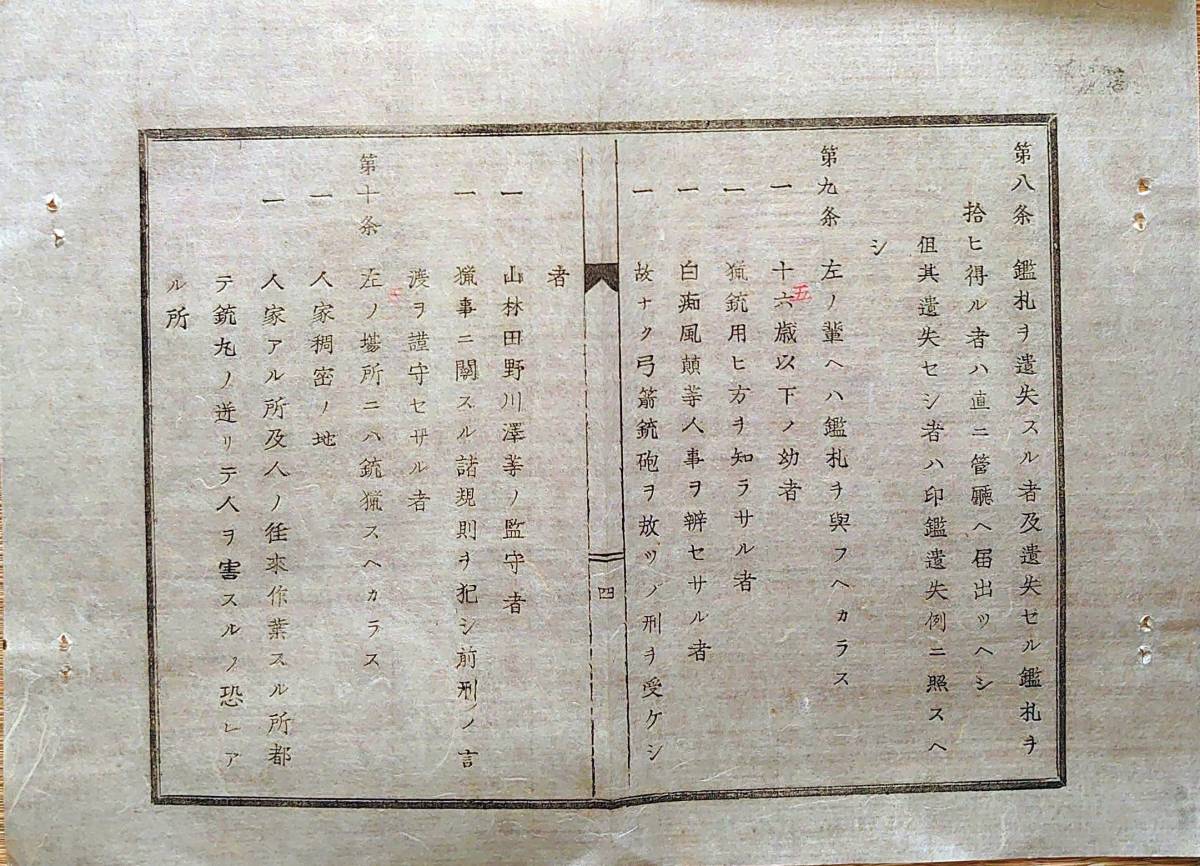 第八条 鑑札ヲ遺失スル者及遺失セル鑑札ヲ
拾ヒ得ル者ハ直ニ管廳ヘ届出ツヘシ
但其遺失セシ者ハ印鑑遺失例ニ照スヘ
シ
第九条 左ノ輩ヘハ鑑札ヲ與フヘカラス
一 十六歳以下ノ幼者
五
一 猟銃用ヒ方ヲ知ラサル者
一 白痴風顛等人事ヲ辨セサル者
一 故ナク弓箭銃砲ヲ放ツノ刑ヲ受ケシ
四
者
一 山林田野川澤等ノ監守者
一 猟事ニ關スル諸規則ヲ犯シ前刑ノ言
渡ヲ謹守セサル者
第十条 左ノ塲所ニハ銃猟スヘカラス
一 人家稠密ノ地
一 人家アル所及人ノ往來作業スル所都
テ銃丸ノ迸リテ人ヲ害スルノ恐レア
ル所